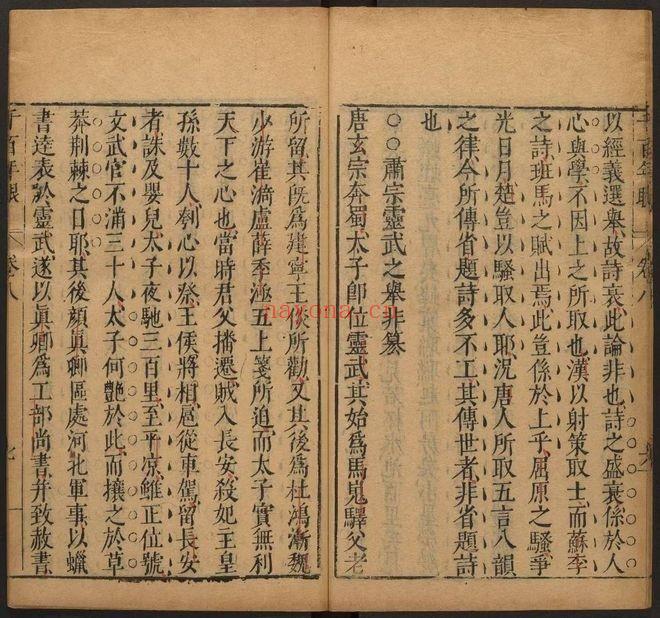 以經義選舉故詩衰此論非也詩之盛衰係於人
心與學不因上之所取也漢以射策取士而蘇李
之詩班馬之賦出焉此豈係於上乎屈原之騷爭
光日月楚豈以騷取人耶況唐人所取五言八韻
之律今所傳省題詩多不工其傳世者非省題詩
也
○○肅宗靈武之舉非篡
唐玄宗奔蜀太子卽位靈武其始爲馬嵬驛父老
所留其旣爲建寧王倓所勸又其後爲杜鴻漸魏
少游崔漪盧薛季逓五上箋所迫而太子實無利
天下之心也當時君父播遷賊入長安殺妃王皇
孫數十人刳心以祭王侯將相扈從車駕留長安
者誅及嬰兒太子夜馳三百里至平凉雖正位號
文武官不滿三十人太子何艷於此而攘之於草
莽荆棘之日耶其後顔眞卿區處河北軍事以蠟
書達表於靈武遂以眞卿爲工部尚書幷致赦書
千百年眼
卷八
nayona.cn